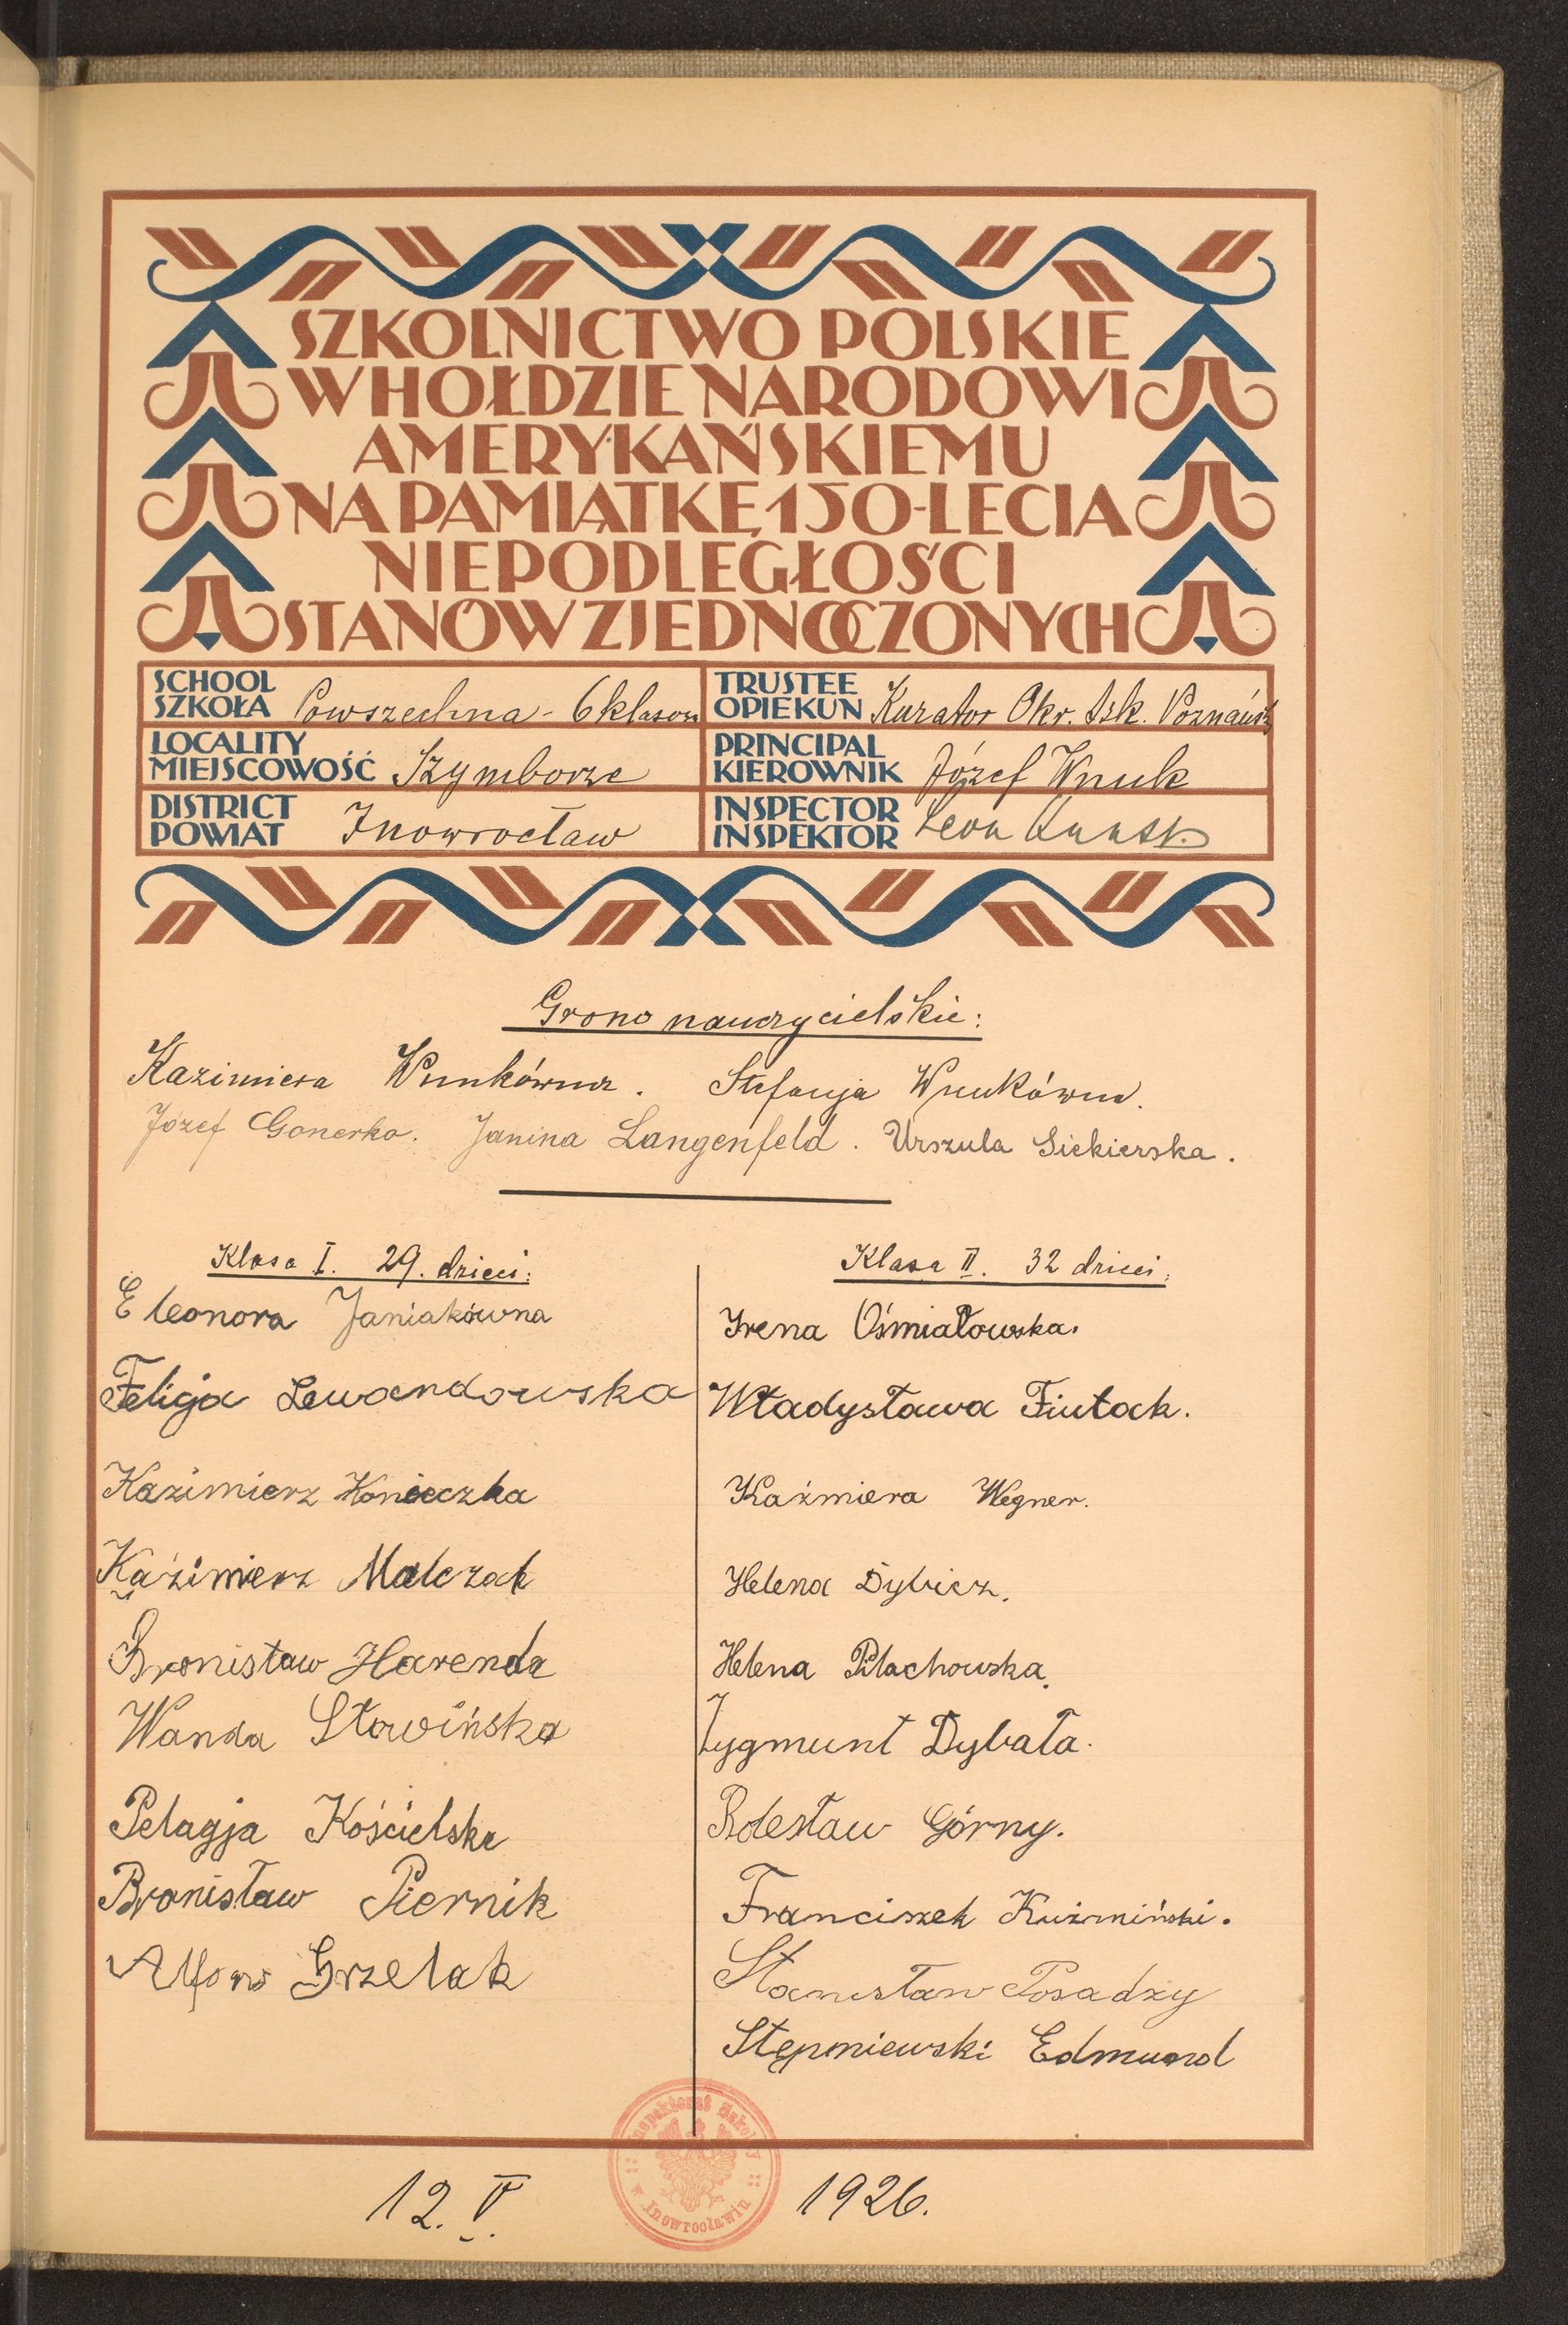 SZKOLNICTWO POLSKIE
W HOŁDZIE NARODOWI
AMERYKAŃSKIEMU
NA PAMIĄTKĘ 150-LECIA
NIEPODLEGŁOŚCI
STANÓW ZJEDNOCZONYCH
SCHOOL
SZKOŁA Powszechna - 6 klasow
TRUSTEE
OPIEKUN Kurator Okr. Szk. Poznańsk
LOCALITY
MIEJSCOWOŚĆ Szymborze
PRINCIPAL
KIEROWNIK Józef Wnuk
DISTRICT
POWIAT Inowrocław
INSPECTOR
INSPEKTOR Leon
Grono nauczycielskie:
Kazimiera Wnukówna. Stefanja Wnukówna.
Józef Gonerko. Janina Langenfeld. Urszula Siekierska.
Klasa I. 29. dzieci:
Eleonora Janiakówna
Felicja Lewandowska
Kazimierz Konieczka
Kaźimierz Malczak
Bronisław Harenda
Wanda Słowińska
Pelagja Kościelska
Bronisław Piernik
Alfons Grzelak
Klasa II. 32 dzieci:
Irena Ośmiałowska.
Władysława Fiutak.
Kaźmiera Wegner.
Helena Dybicz.
Helena Pilachowska.
Zygmunt Dybała.
Bolesław Górny.
Franciszek Kuźmiński.
Stanisław Posadzy
Stępniewski Edmund
Inspektorat Szkolny
w Inowrocławiu
12. V. 1926.